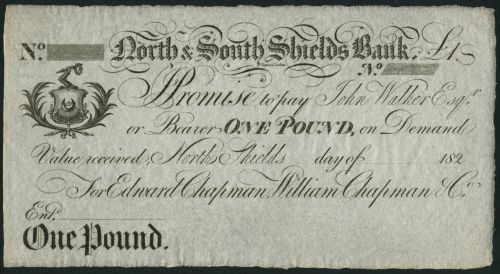 No. North & South Shields Bank. £1
No.
I Promise to pay John Walker Esqr.
or Bearer ONE POUND, on Demand
Value received, North Shields day of 182
For Edward Chapman, William Chapman & Co.
Entd.
One Pound.